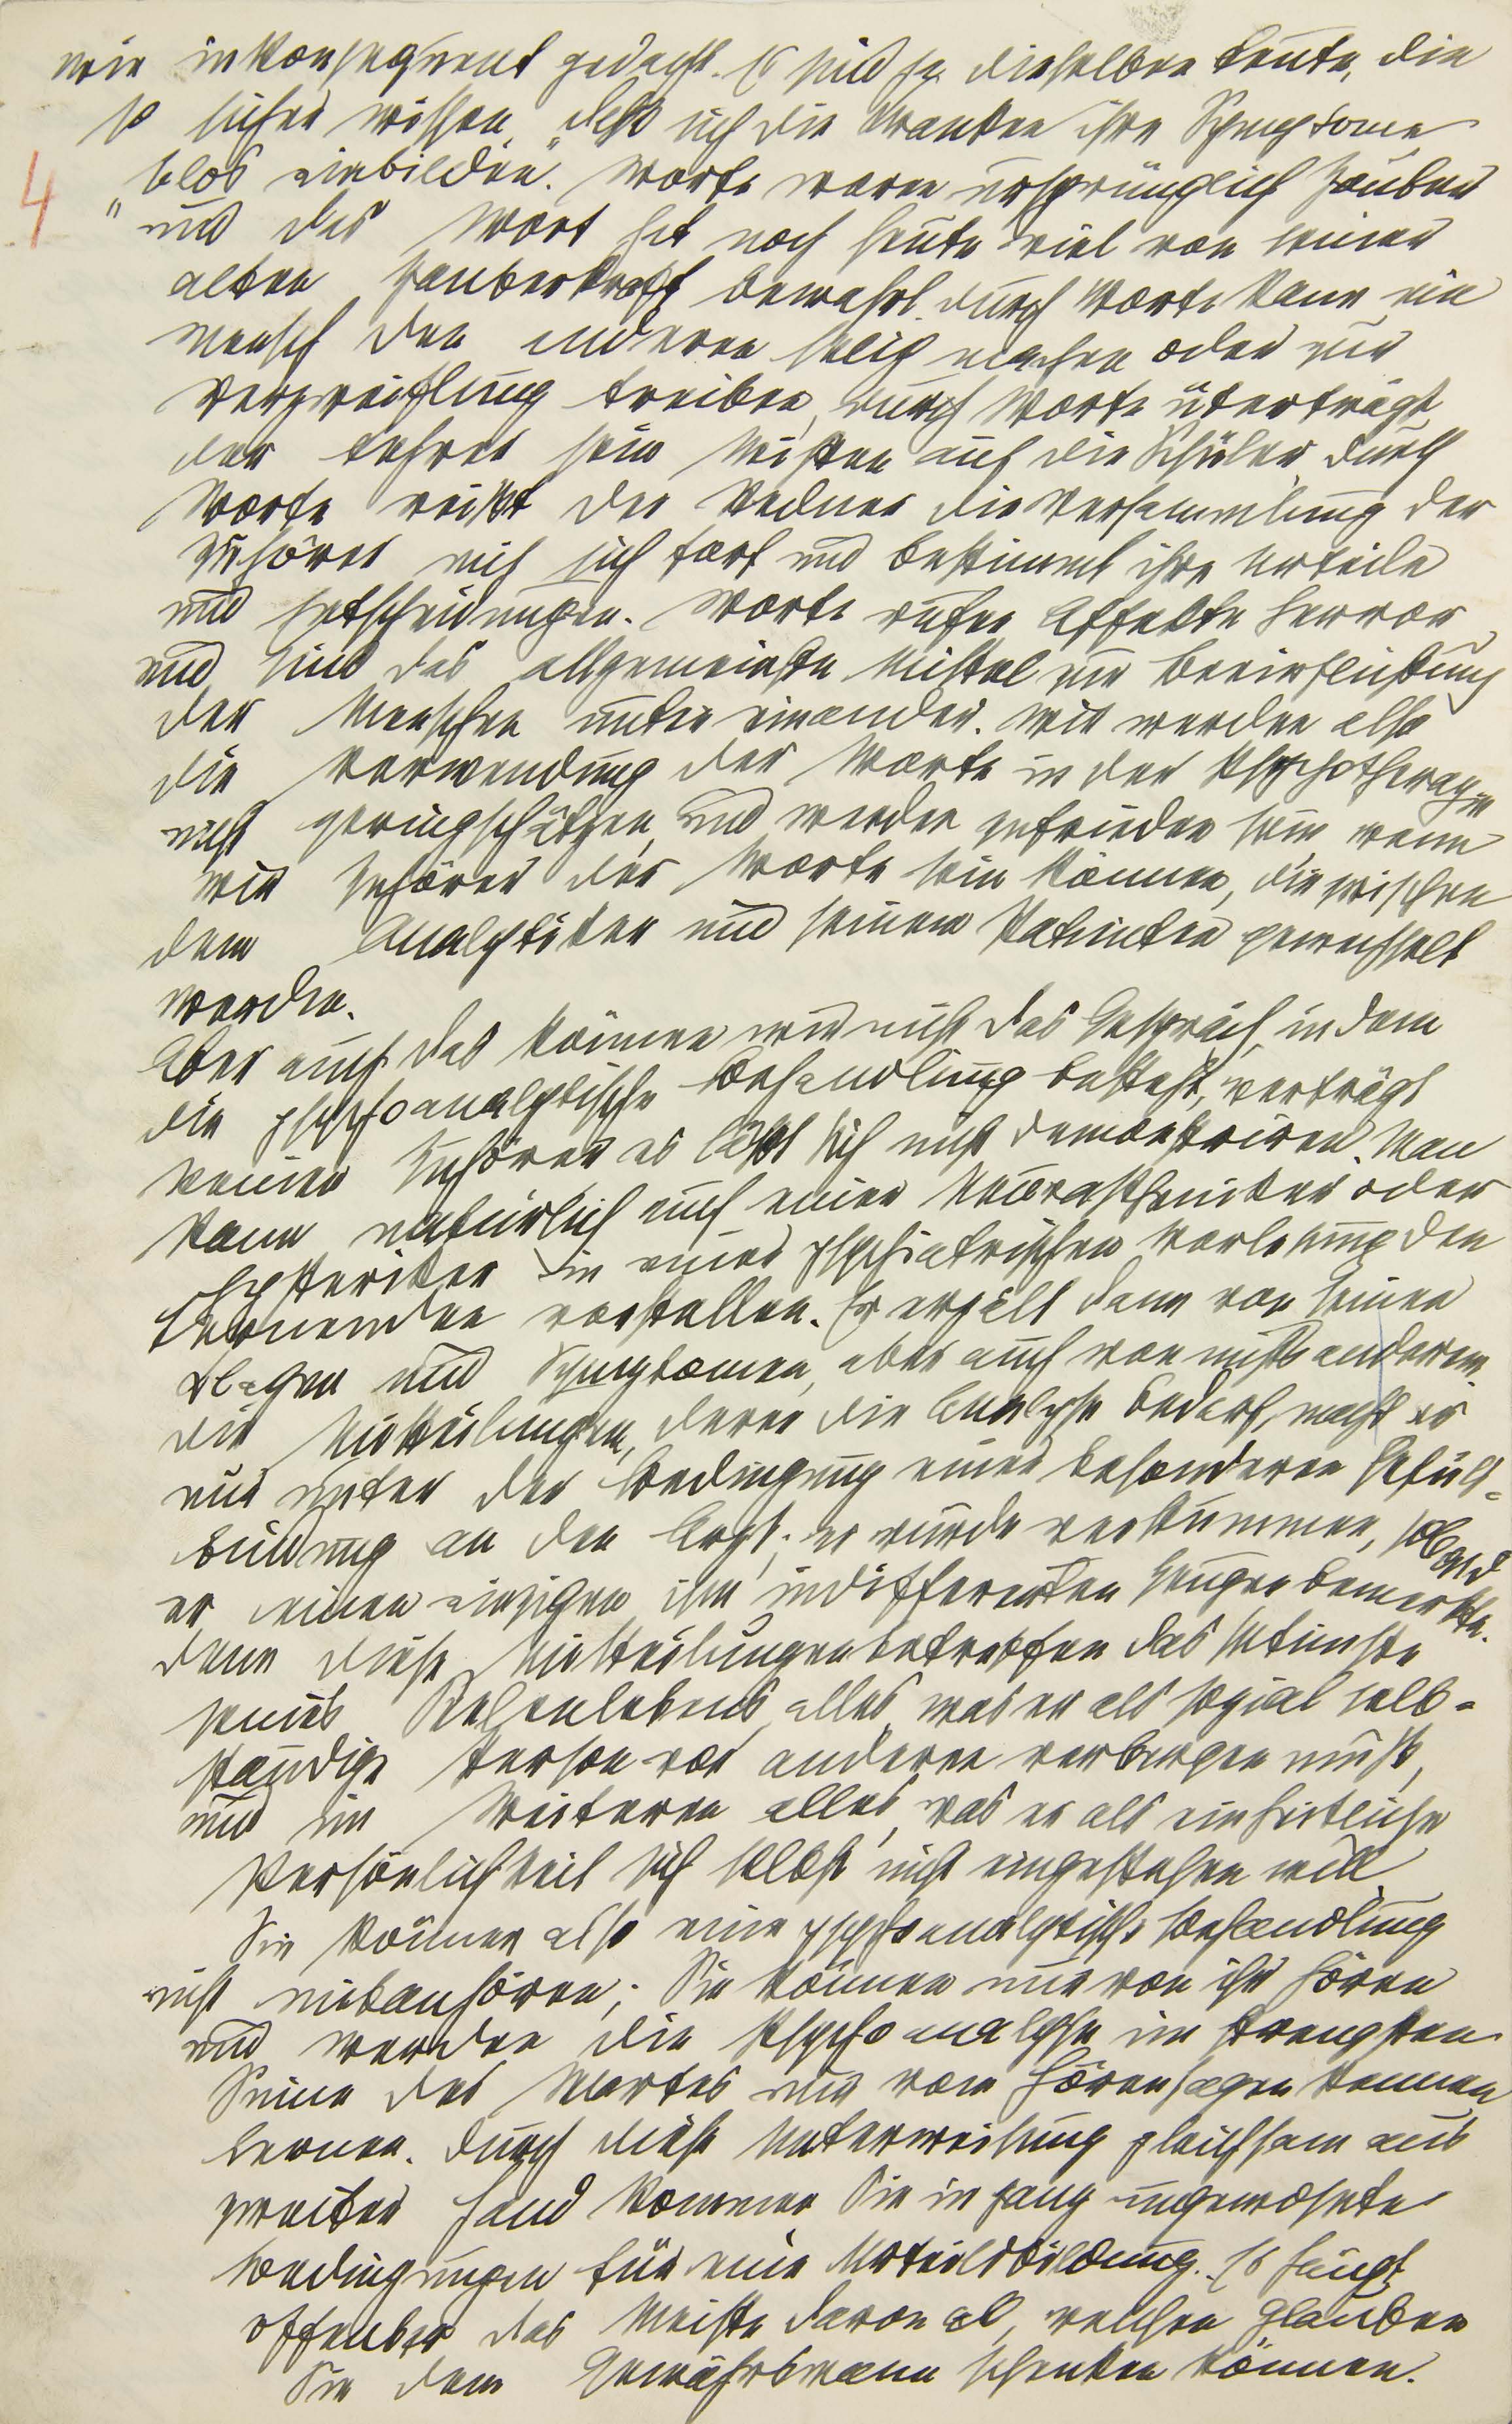 wie inkonsequent gedacht. Es sind ja dieselben Leute, die
so sicher wissen, daß sich die Kranken ihre Symptome
4
„blos einbilden". Worte waren ursprünglich Zauber
und das Wort hat noch heute viel von seiner
alten Zauberkraft bewahrt. Durch Worte kann ein
Mensch den anderen selig machen oder zur
Verzweiflung treiben, durch Worte überträgt
der Lehrer sein Wissen auf die Schüler, durch
Worte reißt der Redner die Versammlung der
Zuhörer mit sich fort und bestimmt ihre Urteile
und Entscheidungen. Worte rufen Affekte hervor
und sind das allgemeinste Mittel zur Beeinflußung
der Menschen unter einander. Wir werden also
die Verwendung der Worte in der Psychotherapie
nicht geringschätzen und werden zufrieden sein wenn
wir Zuhörer der Worte sein können, die zwischen
dem Analytiker und seinem Patienten gewechselt
werden.
Aber auch das können wir nicht. Das Gespräch, in dem
die psychoanalytische Behandlung besteht, verträgt
keinen Zuhörer es läßt sich nicht demonstriren. Man
kann natürlich auch einen Neurastheniker oder
Hysteriker in einer psychiatrischen Vorlesung den
Lernenden vorstellen. Er erzält dann von seinen
Klagen und Symptomen, aber auch von nichts anderem.
Die Mitteilungen, deren die Analyse bedarf, macht er
nur unter der Bedingung einer besonderen Gefühls-
bindung an den Arzt; er würde verstummen, sobald
er einen einzigen, ihm indifferenten Zeugen bemerkte.
Denn diese Mitteilungen betreffen das Intimste
seines Seelenlebens, alles was er als sozial selb-
ständige Person vor anderen verbergen muß,
und im Weiteren alles, was er als einheitliche
Persönlichkeit sich selbst nicht eingestehen will.
Sie können also eine psychoanalytische Behandlung
nicht mitanhören; Sie können nur von ihr hören
und werden die Psychoanalyse im strengsten
Sinne des Wortes nur vom Hörensagen kennen
lernen. Durch diese Unterweisung gleichsam aus
zweiter Hand kommen Sie in ganz ungewohnte
Bedingungen für eine Urteilsbildung. Es hängt
offenbar das Meiste davon ab, welchen Glauben
Sie dem Gewährsmann schenken können.